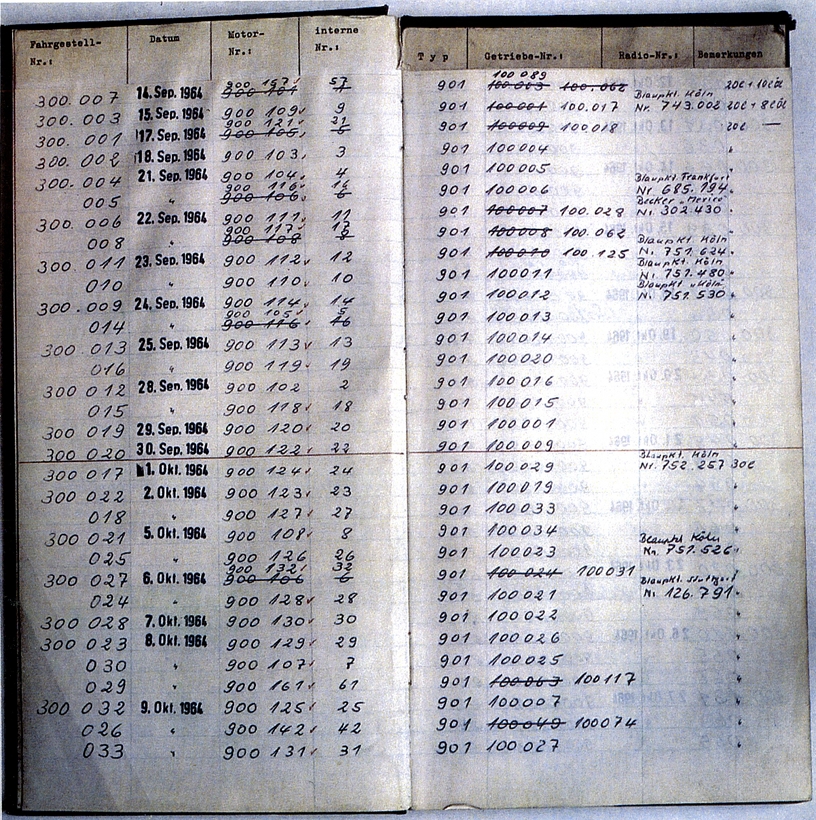 Fahrgestell-Nr.: Datum Motor-Nr.: interne Nr.: Typ Getriebe-Nr.: Radio-Nr.: Bemerkungen
900 157 57 100 089
300.007 14. Sep. 1964 900 101 1 901 100 003 100.066 Blaupkt. Köln 20l + 10l Öl
300.003 15. Sep. 1964 900 109 9 901 100 001 100.017 Nr. 743.002 20l + 8l Öl
900 121 21
300.001 17. Sep. 1964 900 105 5 901 100 009 100.018 20l —
300.002 18. Sep. 1964 900 103 3 901 100004 "
300.004 21. Sep. 1964 900 104 4 901 100005 " Blaupkt. Frankfurt
900 116 16
005 " 900 106 6 901 100006 Nr. 685.194 "
Becker "Mexico"
300.006 22. Sep. 1964 900 111 11 901 100 007 100.028 Nr. 302.430 "
900 117 17
008 " 900 108 8 901 100 008 100.062 "
Blaupkt. Köln
300.011 23. Sep. 1964 900 112 12 901 100 010 100.125 Nr. 751.624 "
Blaupkt. Köln
010 " 900 110 10 901 100011 Nr. 751.480 "
Blaupkt. "Köln"
300.009 24. Sep. 1964 900 114 14 901 100012 Nr. 751.530 "
900 105 5
014 " 900 116 16 901 100013 "
300.013 25. Sep. 1964 900 113 13 901 100014 "
016 " 900 119 19 901 100020 "
300 012 28. Sep. 1964 900 102 2 901 100016 "
015 " 900 118 18 901 100015 "
300 019 29. Sep. 1964 900 120 20 901 100001 "
300 020 30. Sep. 1964 900 122 22 901 100009 "
Blaupkt. Köln
300 017 1. Okt. 1964 900 124 24 901 100029 Nr. 752.257 30l
300 022 2. Okt. 1964 900 123 23 901 100019 "
018 " 900 127 27 901 100033 "
300 021 5. Okt. 1964 900 108 8 901 100034 "
Blaupkt Köln
025 " 900 126 26 901 100023 Nr. 751.526 "
900 132 32
300 027 6. Okt. 1964 900 106 6 901 100 024 100031 "
Blaupkt. Stuttgart
024 " 900 128 28 901 100021 Nr. 126.791 "
300 028 7. Okt. 1964 900 130 30 901 100022 "
300 023 8. Okt. 1964 900 129 29 901 100026 "
030 " 900 107 7 901 100025 "
029 " 900 161 61 901 100 063 100117 "
300 032 9. Okt. 1964 900 125 25 901 100007 "
026 " 900 142 42 901 100 049 100074 "
033 " 900 131 31 901 100027 "